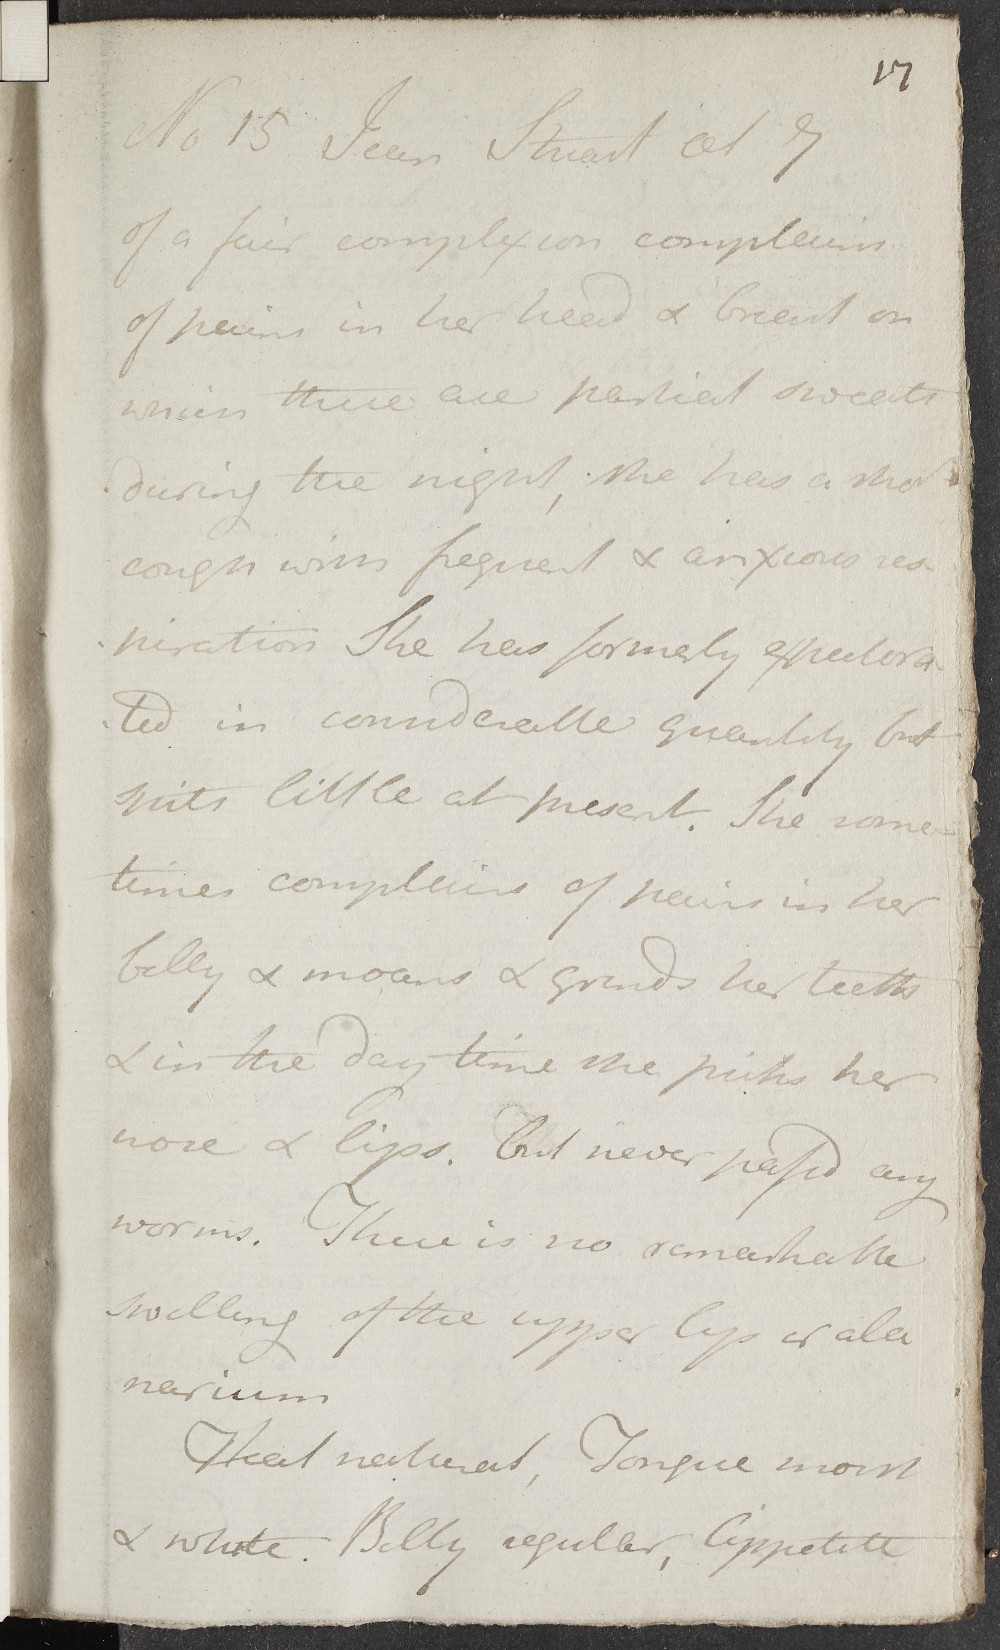 17
No 15 Jean Stuart æt 7
of a fair complexion complains
of pains in her head & breast on
which there are partial sweats
during the night, she has a short
cough with frequent & anxious res-
piration She has formerly expectora-
ted in considerable quantity but
spits little at present. She some-
times complains of pains in her
belly & moans & grinds her teeth
& in the day time she picks her
nose & lips. but never passd any
worms. There is no remarkable
swelling of the upper lip or alæ
narium
Heat natural, Tongue moist
& white. Belly regular, Appetite